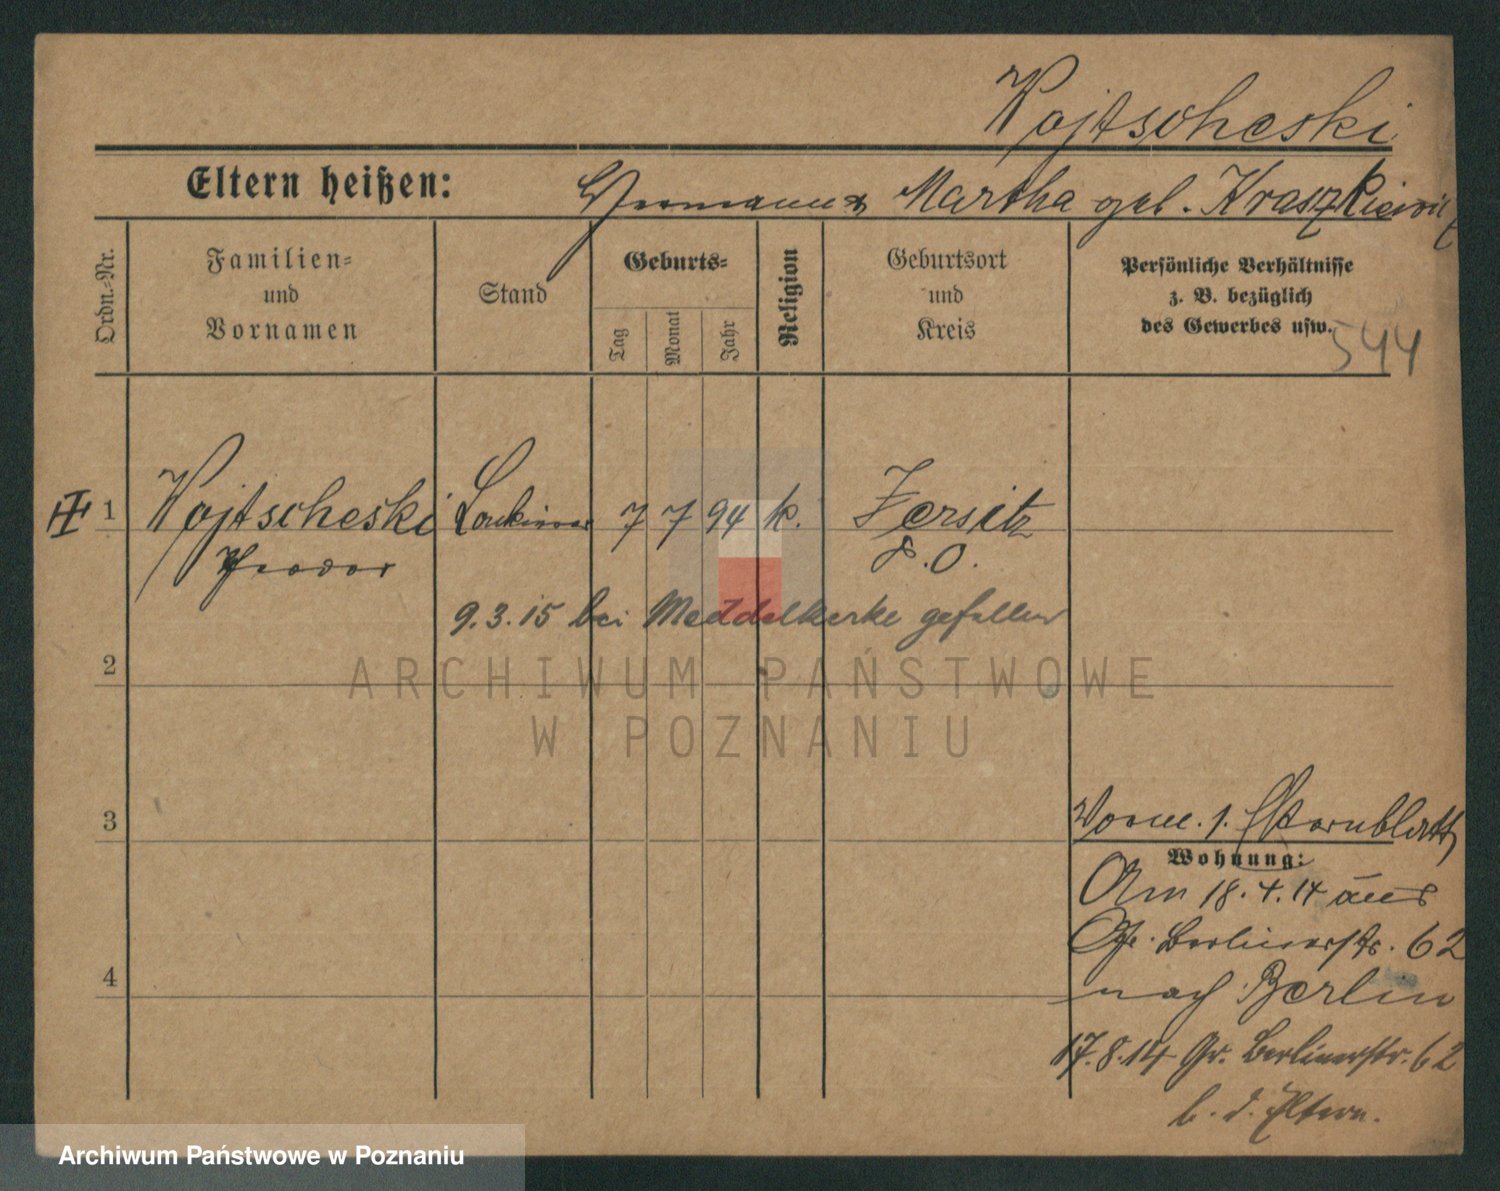 Wojtscheski
Eltern heißen: Hermann & Martha geb. Kraszkiewicz
Ordn.-Nr.
Familien-
und
Vornamen
Stand
Geburts-
Tag
Monat
Jahr
Religion
Geburtsort
und
Kreis
Persönliche Verhältnisse
z. B. bezüglich
des Gewerbes usw.
544
1 Wojtscheski 7 7 94 k. Jersitz
Theodor P. O.
9.3.15 bei Meddelkerke gefallen
2
ARCHIWUM PAŃSTWOWE
W POZNANIU
3
4
Vorm. s. Stornblatt
Wohnung:
Am 18.4.14 aus
Gr. Berlinerstr. 62
nach Berlin
17.8.14 Gr. Berlinerstr. 62
b. d. Eltern.
Archiwum Państwowe w Poznaniu